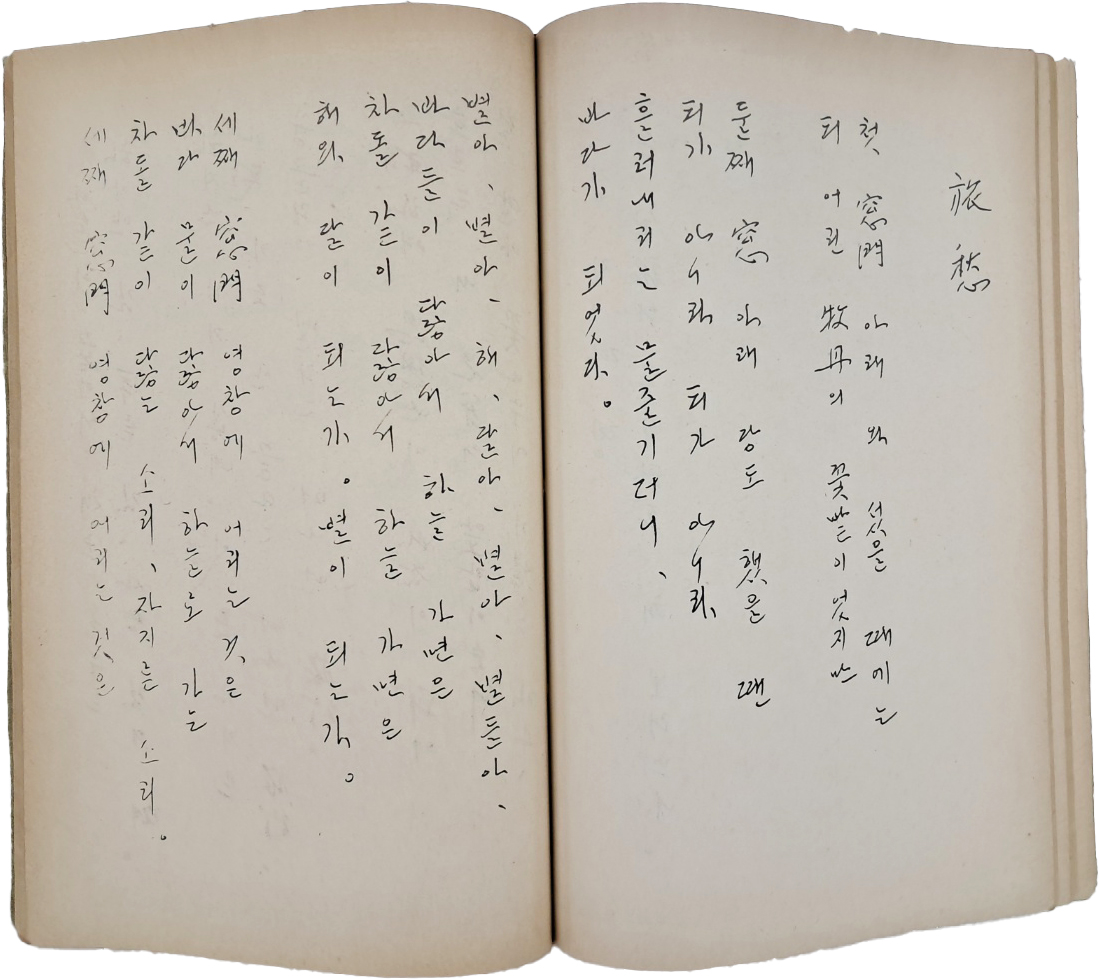 旅愁
첫 窓門 아래 와 섰을 때에는
피 어린 牧丹의 꽃밭이었지만
둘째 窓 아래 당도 했을 땐
피가 아니라 피가 아니라
흘러내리는 물줄기더니、
바다가 되었다。
별아、별아、해、달아、별아、별들아、
바다들이 닳아서 하늘 가면은
차돌 같이 닳아서 하늘 가면은
해와 달이 되는가。별이 되는가。
세째 窓門 영창에 어리는 것은
바다 물이 닳아서 하늘로 가는
차돌 같이 닳는 소리、자지른 소리。
세째 窓門 영창에 어리는 것은